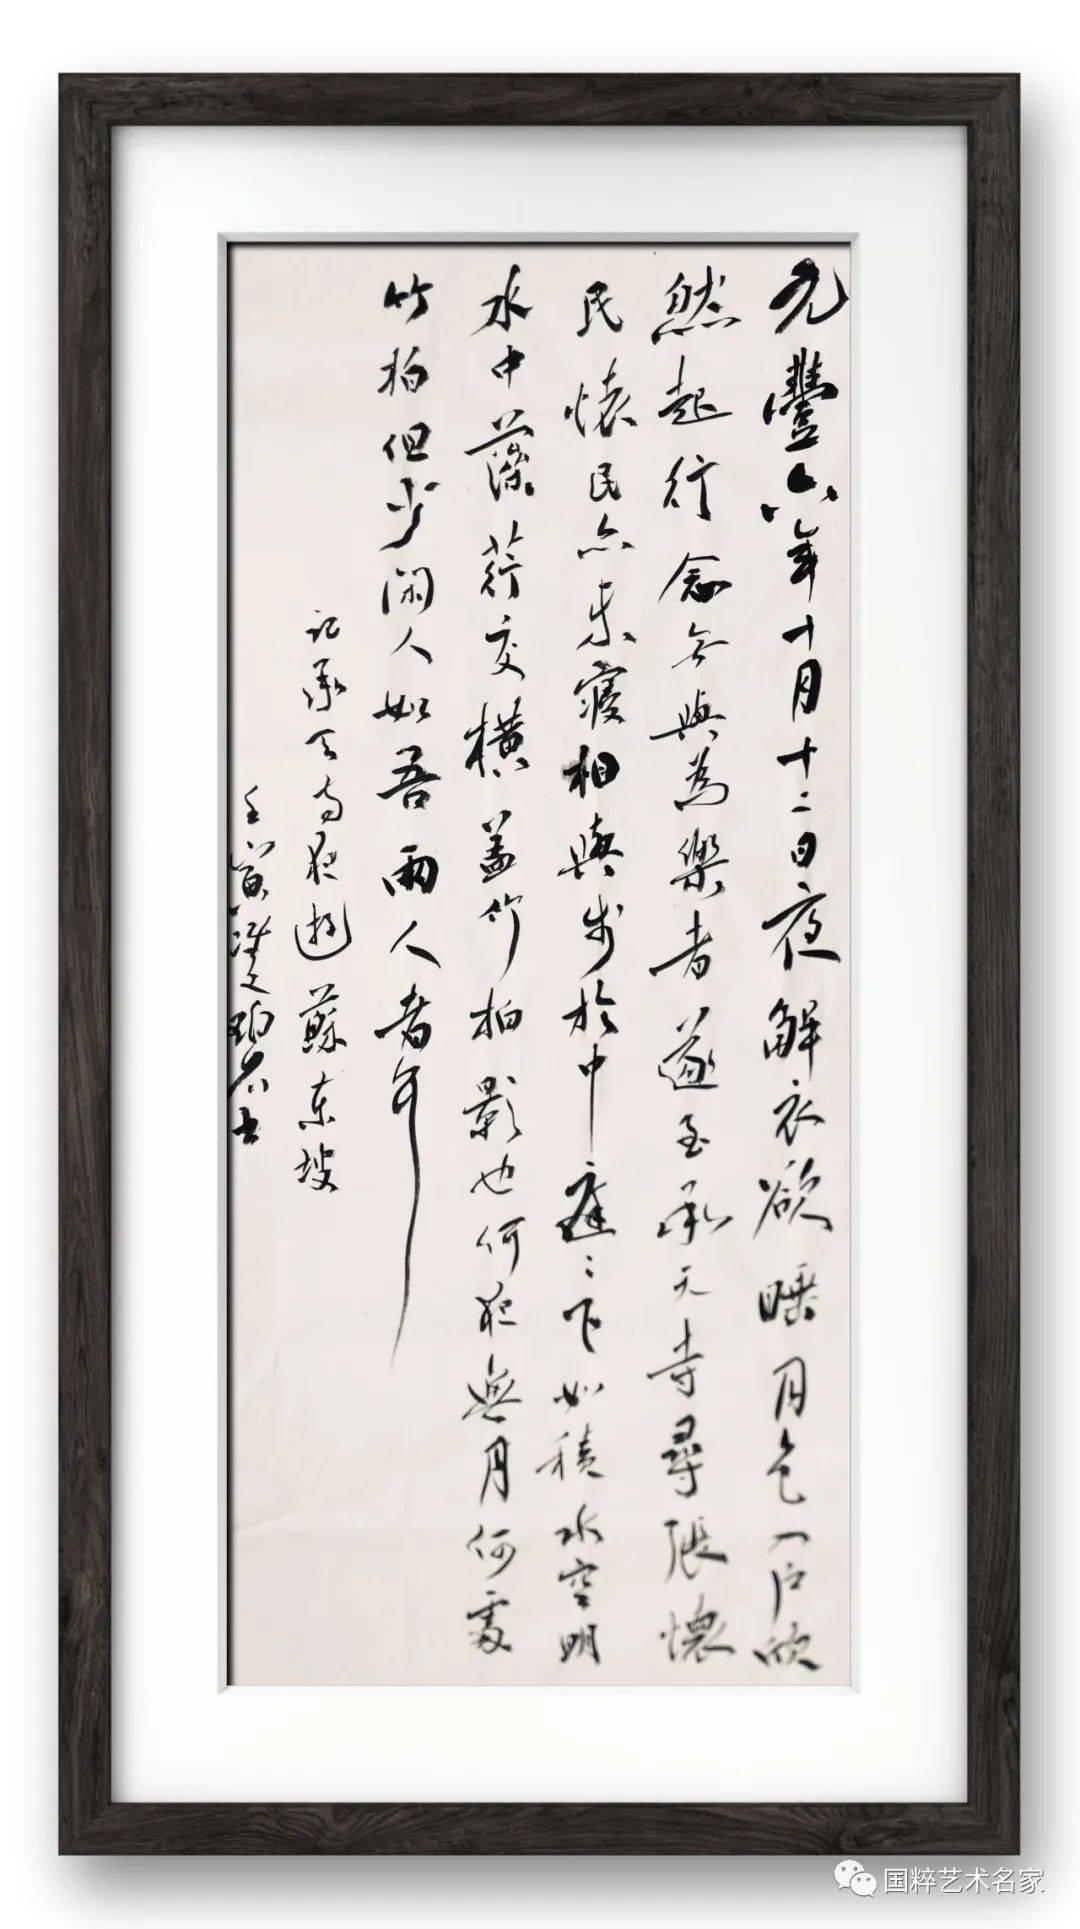 元豐六年十月十二日夜解衣欲睡月色入户欣
然起行念无與為樂者遂至承天寺尋張懷
民懷民亦未寢相與步於中庭〻下如積水空明
水中藻荇交横盖竹柏影也何夜無月何處
竹柏但少闲人如吾兩人者耳
记承天寺夜遊蘇东坡
壬寅
国粹艺术名家